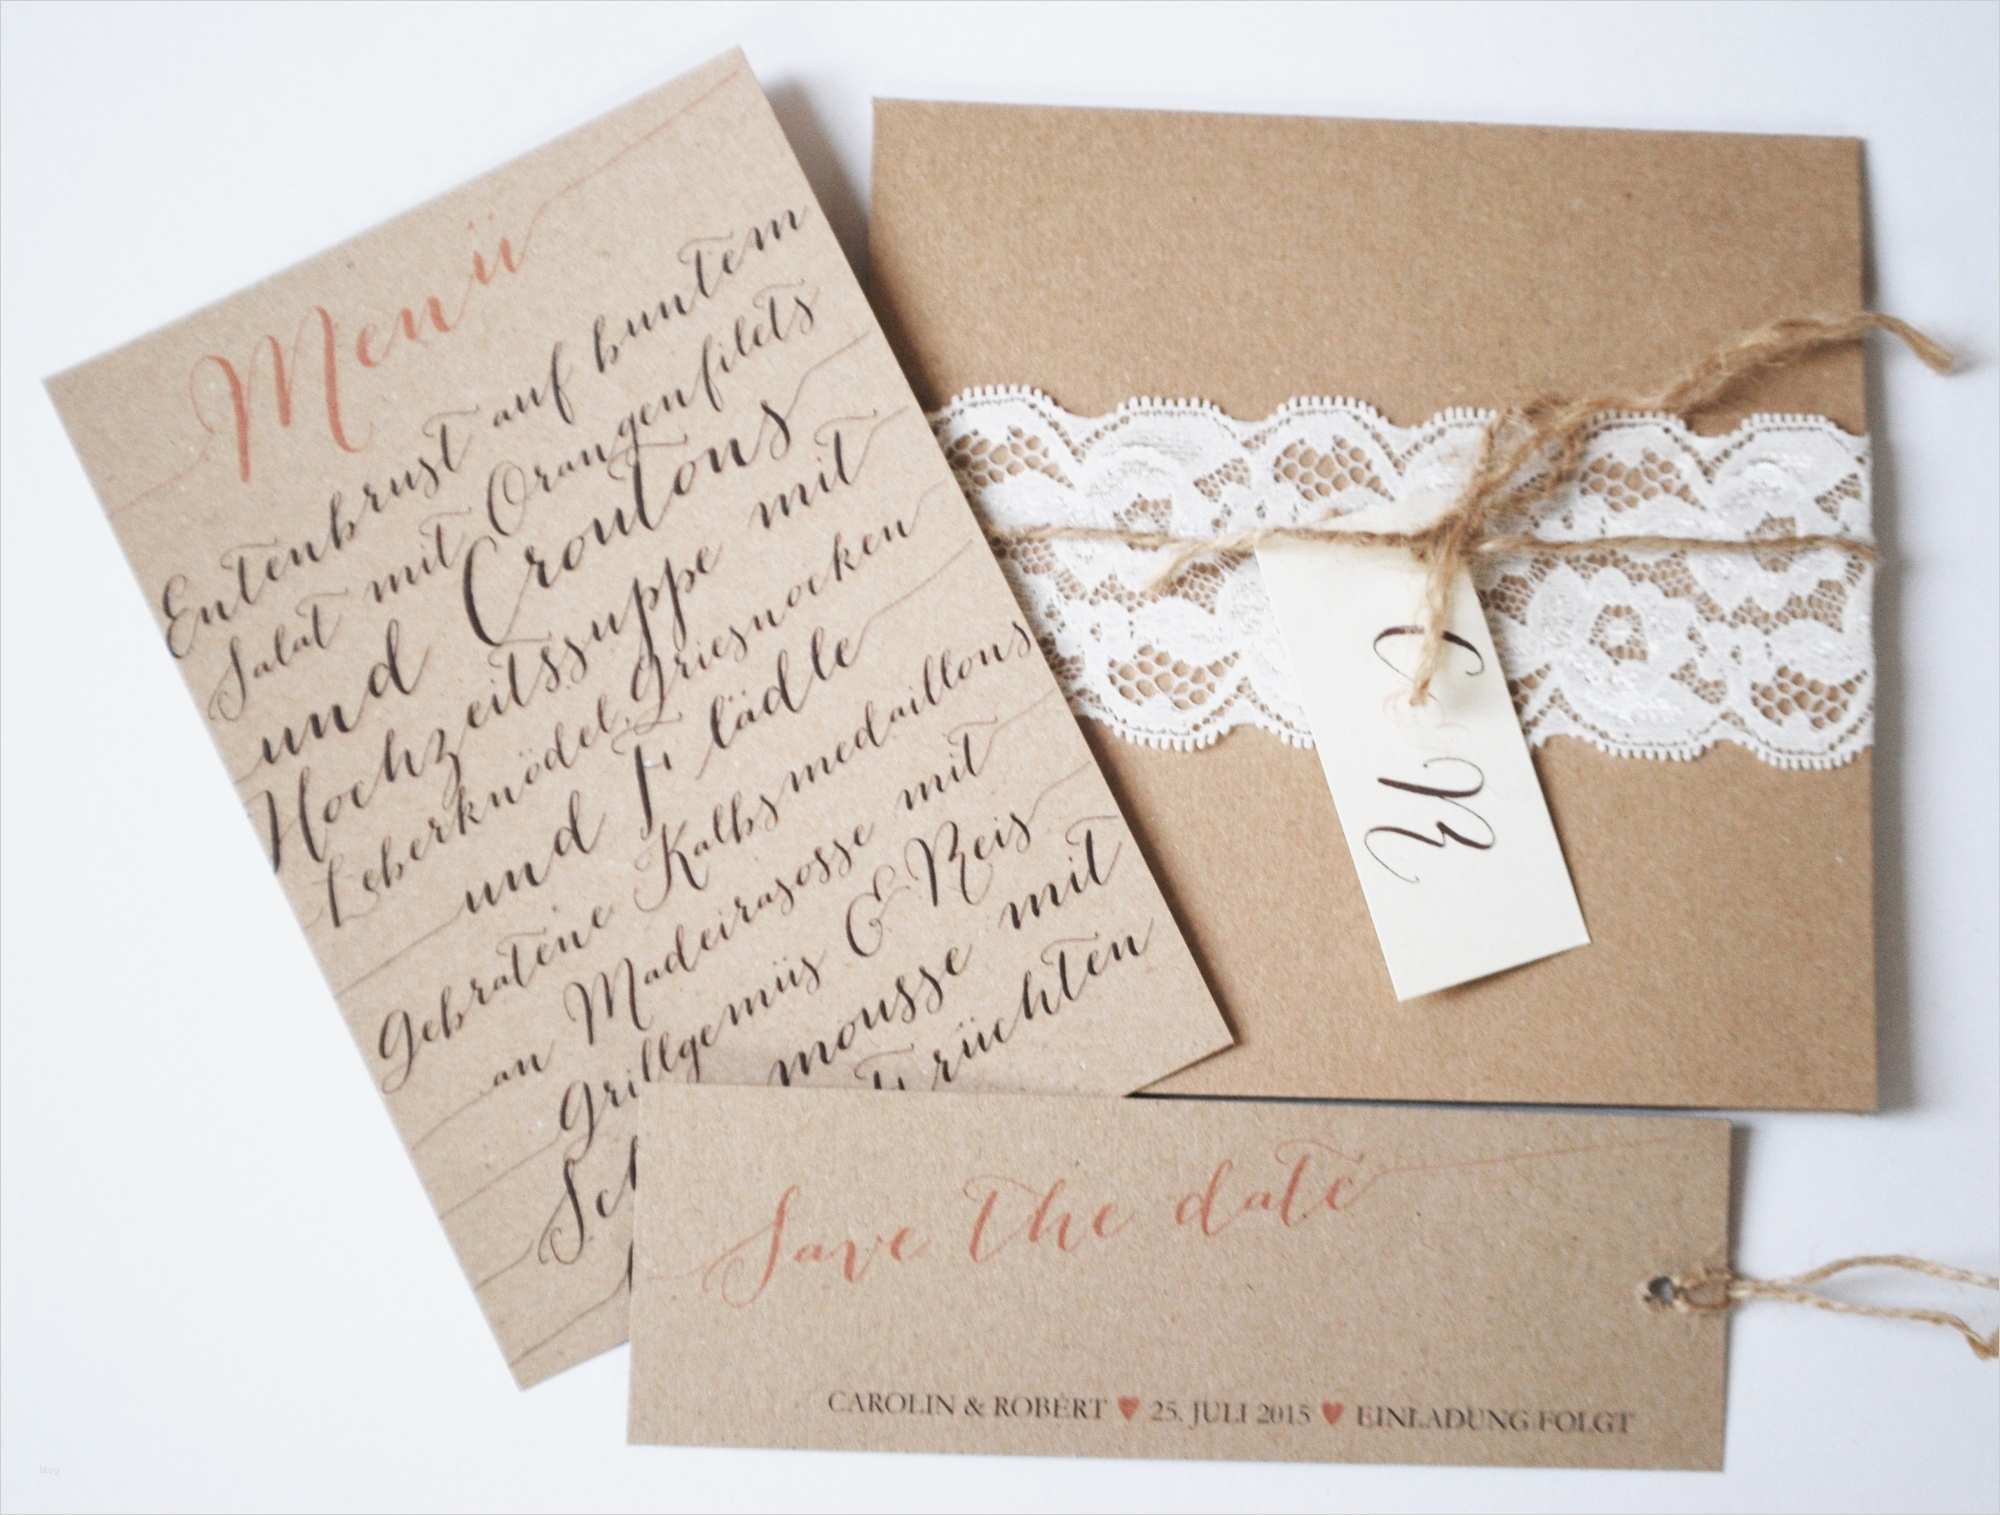 Menü
Entenbrust auf buntem
Salat mit Orangenfilets
und Croutons
Hochzeitssuppe mit
Leberknödel, Griesnocken
und Flädle
Gebratene Kalbsmedaillons
an Madeirasosse mit
Grillgemüs & Reis
mousse mit
Früchten
C
R
Save the date
CAROLIN & ROBERT ♥ 25. JULI 2015 ♥ EINLADUNG FOLGT